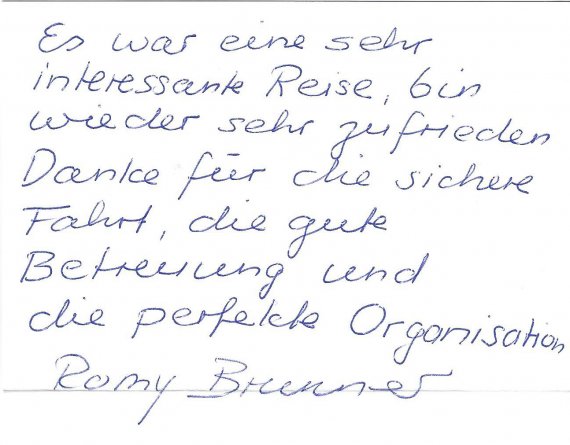 Es war eine sehr
interessante Reise, bin
wieder sehr zufrieden
Danke für die sichere
Fahrt, die gute
Betreuung und
die perfekte Organisation
Romy Brunner